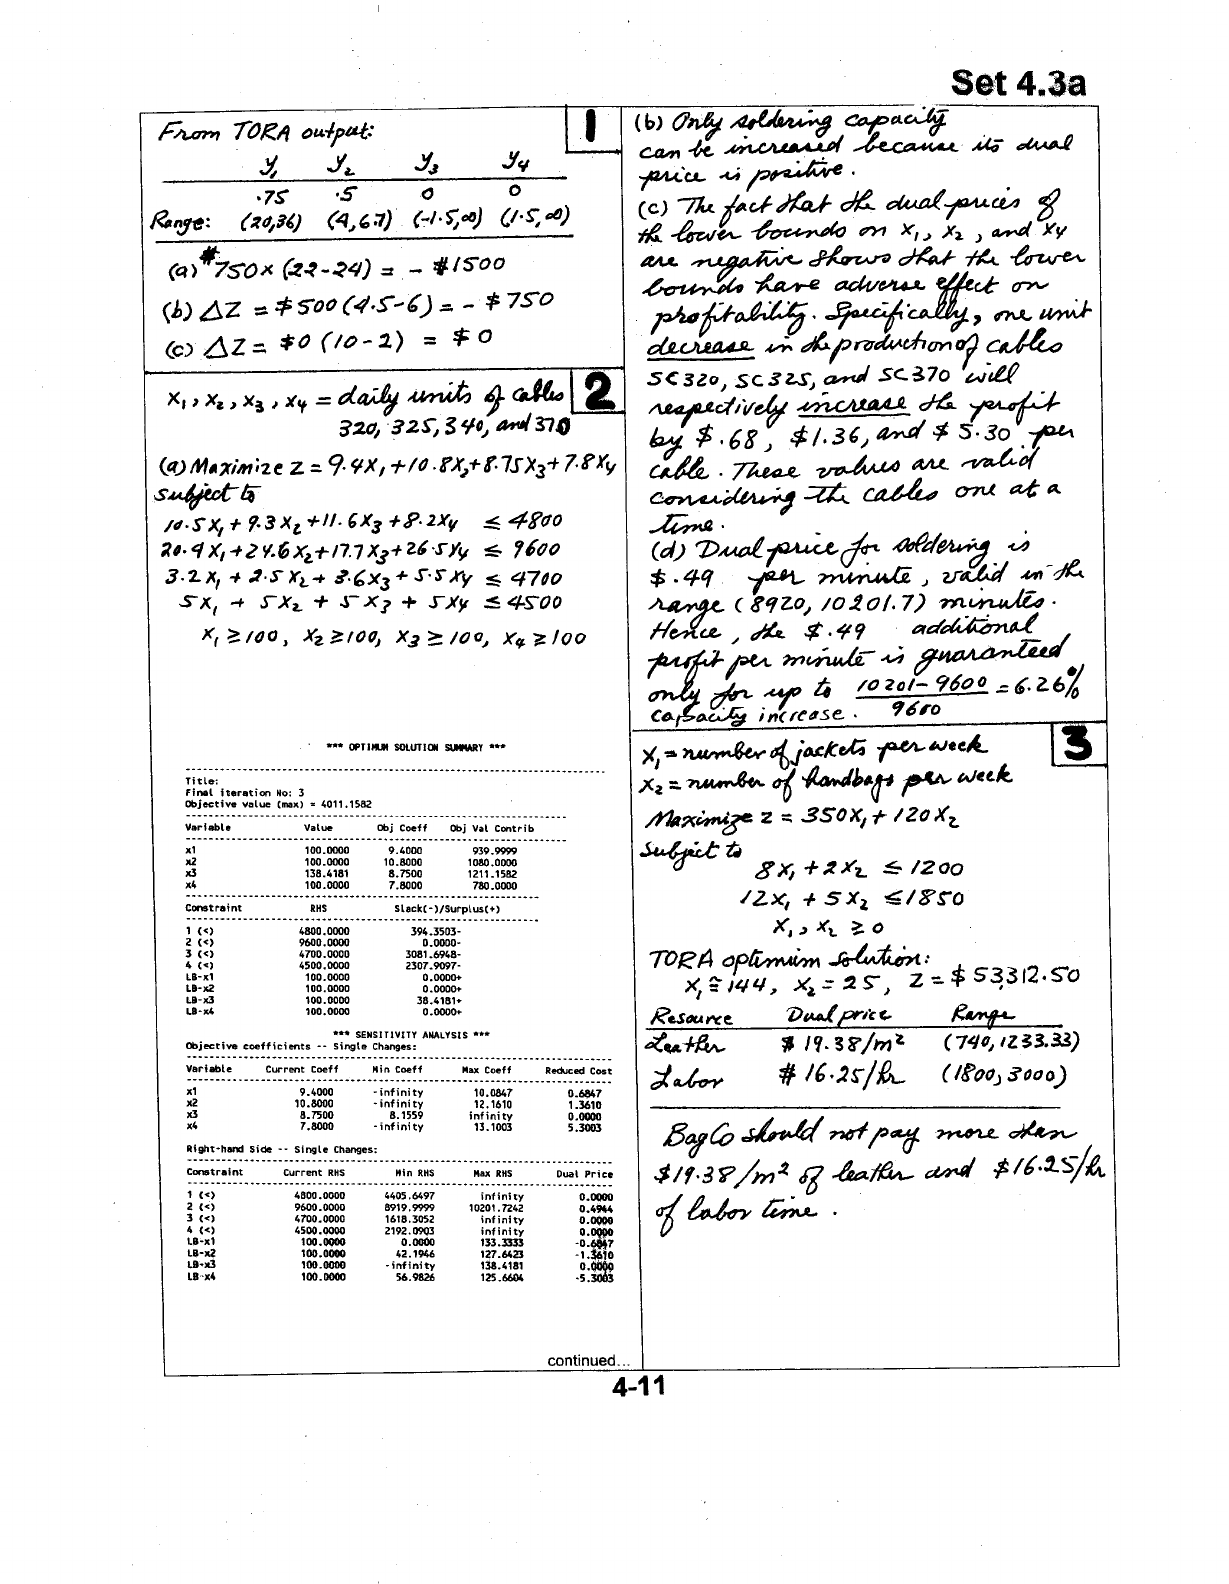 Set 4.3a
From TORA output:
1
y₁ y₂ y₃ y₄
.75 .5 0 0
Range: (20,36) (4,6.7) (-1.5,∞) (1.5,∞)
(a) $750×(22-24) = -$1500
(b) ΔZ = $500(4.5-6) = -$750
(c) ΔZ = $0(10-2) = $0
2
x₁, x₂, x₃, x₄ = daily units of cables
320, 325, 340, and 370
(a) Maximize z = 9.4x₁ + 10.8x₂ + 8.75x₃ + 7.8x₄
subject to
10.5x₁ + 9.3x₂ + 11.6x₃ + 8.2x₄ ≤ 4800
20.4x₁ + 24.6x₂ + 17.7x₃ + 26.5x₄ ≤ 9600
3.2x₁ + 2.5x₂ + 3.6x₃ + 5.5x₄ ≤ 4700
5x₁ + 5x₂ + 5x₃ + 5x₄ ≤ 4500
x₁ ≥ 100, x₂ ≥ 100, x₃ ≥ 100, x₄ ≥ 100
*** OPTIMUM SOLUTION SUMMARY ***
Title:
Final iteration No: 3
Objective value (max) = 4011.1582
Variable Value Obj Coeff Obj Val Contrib
x1 100.0000 9.4000 939.9999
x2 100.0000 10.8000 1080.0000
x3 138.4181 8.7500 1211.1582
x4 100.0000 7.8000 780.0000
Constraint RHS Slack(-)/Surplus(+)
1 (<) 4800.0000 394.3503-
2 (<) 9600.0000 0.0000-
3 (<) 4700.0000 3081.6948-
4 (<) 4500.0000 2307.9097-
LB-x1 100.0000 0.0000+
LB-x2 100.0000 0.0000+
LB-x3 100.0000 38.4181+
LB-x4 100.0000 0.0000+
*** SENSITIVITY ANALYSIS ***
Objective coefficients -- Single Changes:
Variable Current Coeff Min Coeff Max Coeff Reduced Cost
x1 9.4000 -infinity 10.0847 0.6847
x2 10.8000 -infinity 12.1610 1.3610
x3 8.7500 8.1559 infinity 0.0000
x4 7.8000 -infinity 13.1003 5.3003
Right-hand Side -- Single Changes:
Constraint Current RHS Min RHS Max RHS Dual Price
1 (<) 4800.0000 4405.6497 infinity 0.0000
2 (<) 9600.0000 8919.9999 10201.7242 0.4944
3 (<) 4700.0000 1618.3052 infinity 0.0000
4 (<) 4500.0000 2192.0903 infinity 0.0000
LB-x1 100.0000 0.0000 133.3333 -0.6847
LB-x2 100.0000 42.1946 127.6423 -1.3610
LB-x3 100.0000 -infinity 138.4181 0.0000
LB-x4 100.0000 56.9826 125.6604 -5.3003
continued...
(b) Only soldering capacity
can be increased because its dual
price is positive.
(c) The fact that the dual prices of
the lower bounds on x₁, x₂, and x₄
are negative shows that the lower
bounds have adverse effect on
profitability. Specifically, one unit
decrease in the production of cables
SC320, SC325, and SC370 will
respectively increase the profit
by $.68, $1.36, and $5.30 per
cable. These values are valid
considering the cables one at a
time.
(d) Dual price for soldering is
$.49 per minute, valid in the
range (8920, 10201.7) minutes.
Hence, the $.49 additional
profit per minute is guaranteed
only for up to (10201-9600)/9600 = 6.26%
capacity increase.
3
x₁ = number of jackets per week
x₂ = number of handbags per week
Maximize z = 350x₁ + 120x₂
Subject to
8x₁ + 2x₂ ≤ 1200
12x₁ + 5x₂ ≤ 1850
x₁, x₂ ≥ 0
TORA optimum solution:
x₁ ≅ 144, x₂ = 25, z = $53,312.50
Resource Dual price Range
Leather $19.38/m² (740, 1233.33)
Labor $16.25/hr (1800, 3000)
BagCo should not pay more than
$19.38/m² of leather and $16.25/hr
of labor time.
4-11